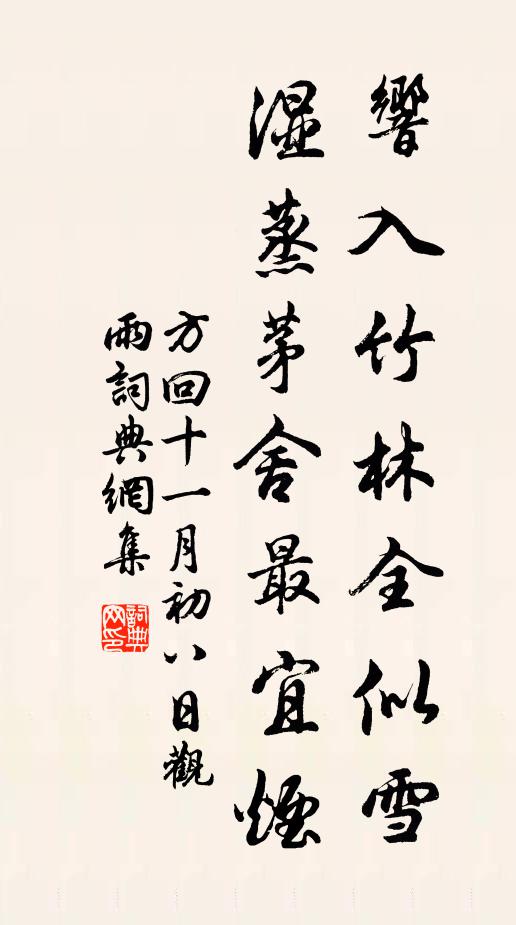 響入竹林全似雪
濕蒸茅舍最宜煙
方回十一月初八日觀
雨詞典網集
詞典
网印